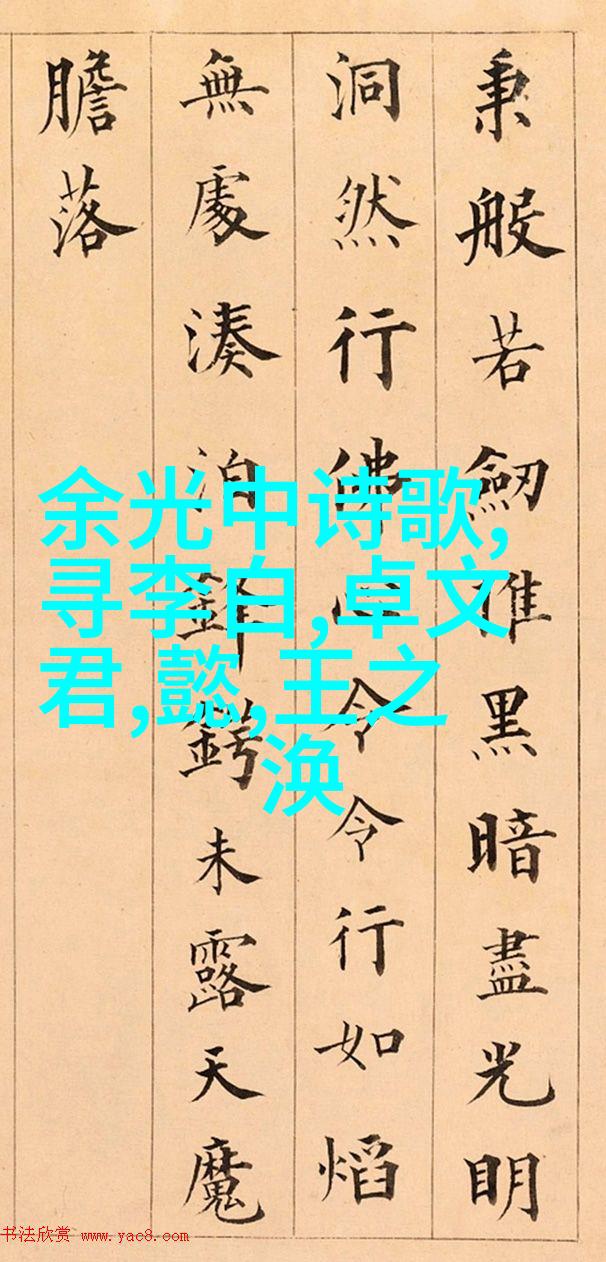 秉般若劔黑暗盡光明
洞然行佛心令令行如熖
無處湊泊鋒鍔未露天魔
膽落
余光中诗歌,
寻李白,卓文
君,懿,王之
涣
书法欣赏 www.yac8.com